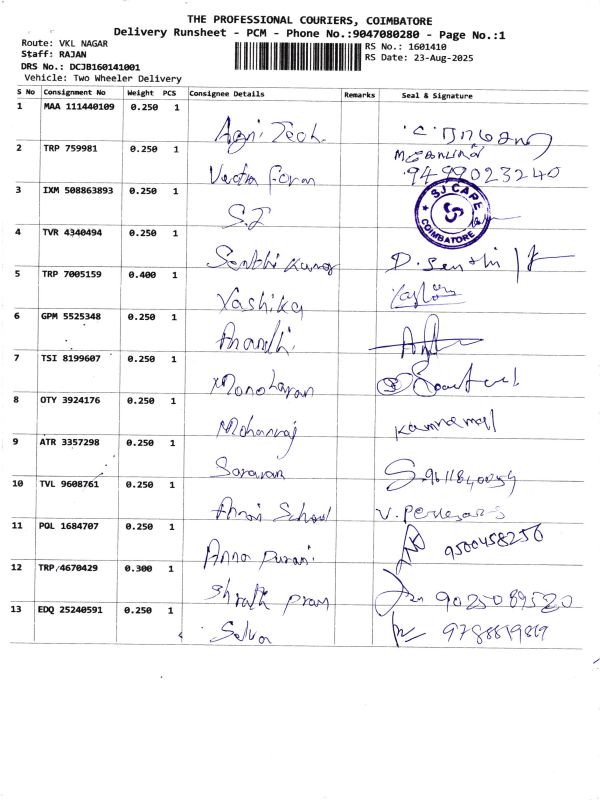 THE PROFESSIONAL COURIERS, COIMBATORE
Delivery Runsheet - PCM - Phone No.:9047080280 - Page No.:1
Route: VKL NAGAR
Staff: RAJAN
DRS No.: DCJB160141001
Vehicle: Two Wheeler Delivery
RS No.: 1601410
RS Date: 23-Aug-2025
S No Consignment No Weight PCS Consignee Details Remarks Seal & Signature
1 MAA 111440109 0.250 1 Agri Tech.
2 TRP 759981 0.250 1 Form 9499023240
3 IXM 508863893 0.250 1 S.J SJ CAPE COIMBATORE
4 TVR 4340494 0.250 1 Senthi Kumar D. Senthi
5 TRP 7005159 0.400 1 Yashika
6 GPM 5525348 0.250 1 Anandhi.
7 TSI 8199607 0.250 1 Manoharan
8 OTY 3924176 0.250 1 Mohanraj
9 ATR 3357298 0.250 1 Saravan
10 TVL 9608761 0.250 1 School
11 PQL 1684707 0.250 1 Anna Purani. 9500458256
12 TRP 4670429 0.300 1 9025089520
13 EDQ 25240591 0.250 1 Selva